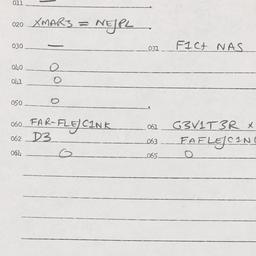 011 —
020 XMAR3 = NE/PL
030 — 031 F1C+ NAS
040 O
041 O
050 O
060 FAR-FLE/C1NK 061 G3V1T3R ×
062 D3 063 FAFLE/C1N
064 O 065 O